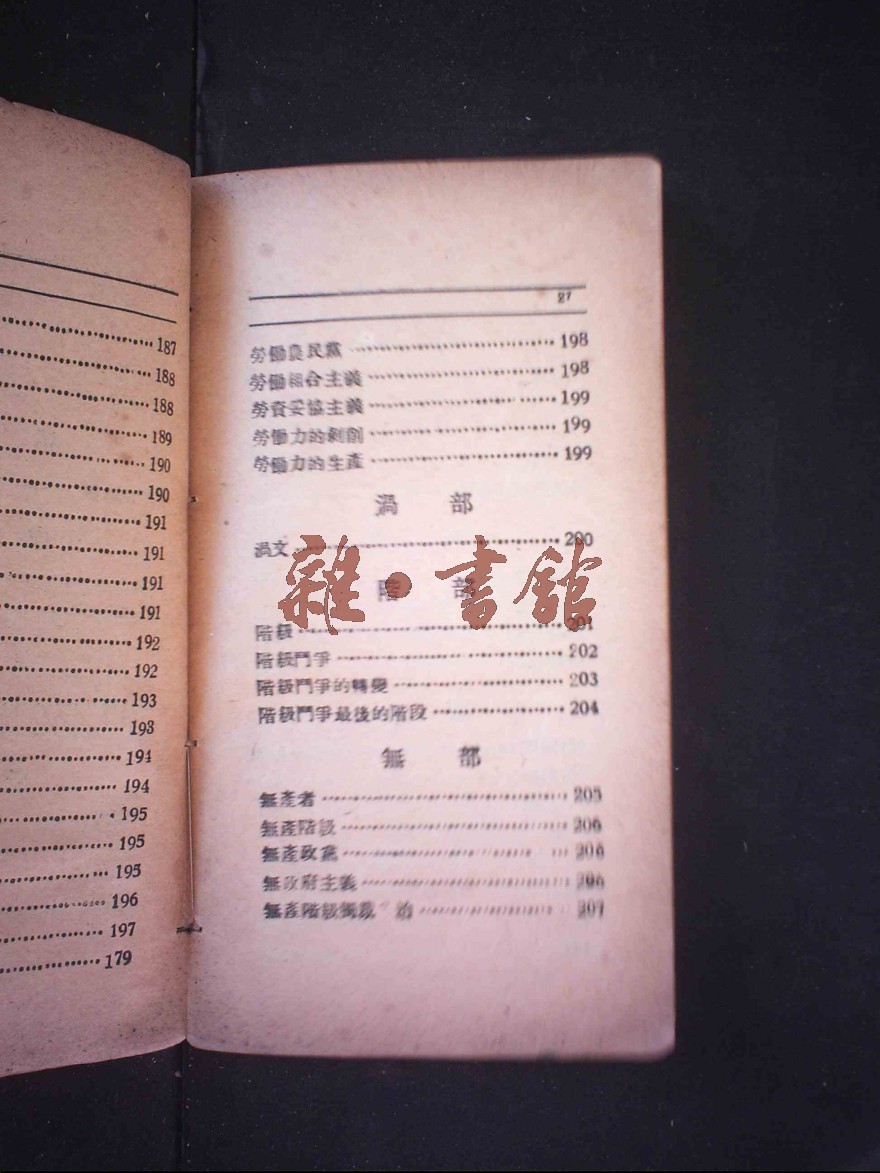 187
188
188
189
190
190
191
191
191
191
192
192
193
193
194
194
195
195
195
196
197
179
27
勞働農民黨 198
勞働組合主義 198
勞資妥協主義 199
勞働力的剝削 199
勞働力的生產 199
渦 部
渦文 200
階 部
階級 201
階級鬥爭 202
階級鬥爭的轉變 203
階級鬥爭最後的階段 204
無 部
無產者 205
無產階級 206
無產政黨 206
無政府主義 206
無產階級獨裁 治 207
雜·書館